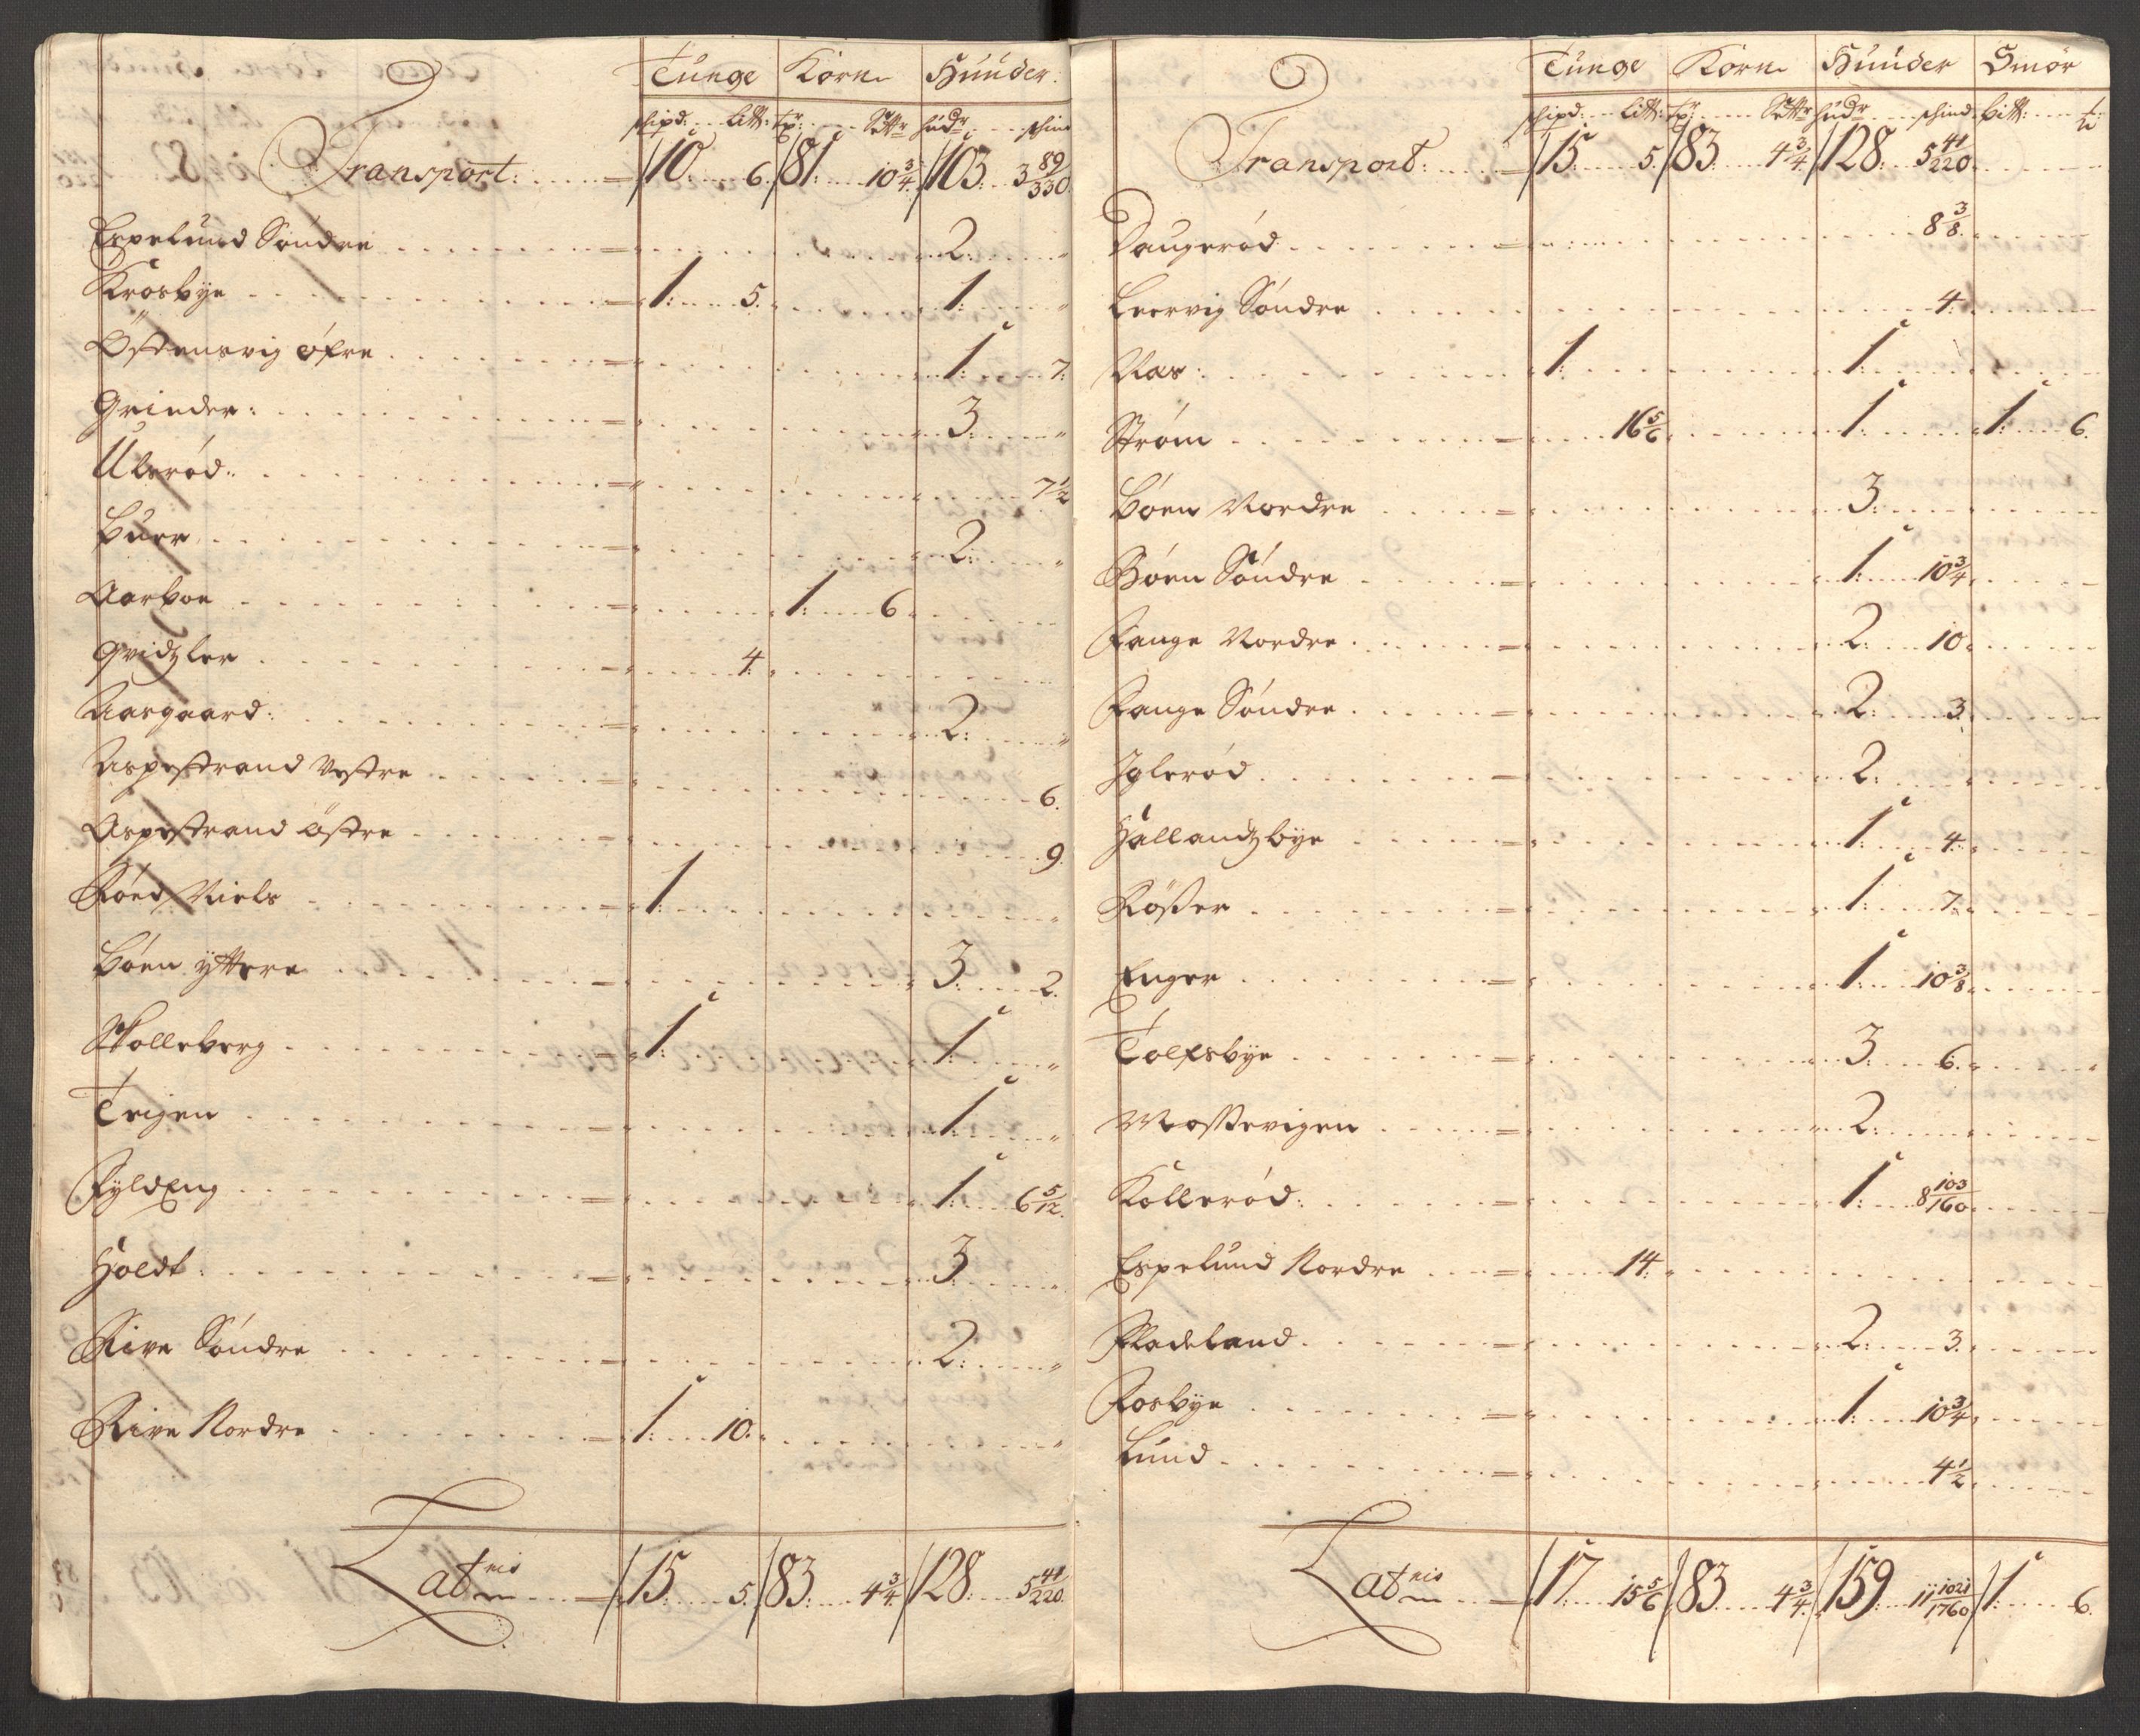 Tunge Korn Huuder.
schipd: Litt: tr: Sett hudr schind
Transport: 10 6. 81 10 3/4 103 3 89/330
Espelund Søndre 2
Krosbÿe 1 5. 1
Østensvig øfre 1 7.
Grinder: 3
Ulerød: 7 1/2
Buer 2
Aarboe 1 6
Qvidzler 4
Aasgaard: 2
Aspestrand Vestre 6.
Aspestrand østre 9.
Røed Niels 1
Bøen ÿttere 3 2.
Skolleborg 1 1
Teigen 1
Fÿldeng 1 6 5/12.
Holdt: 3
Rive Søndre 2
Rive Nordre 1 10.
Latris 15 5. 83 4 3/4 128 5 41/220
Tunge Korn Huuder Smør
schipd: Litt: tr: Sett hudr schind Litt:
Transport: 15 5. 83 4 3/4 128 5 41/220
Daugerød 8 3/8.
Leervig Søndre 4
Nas: 1 1
Strøm 16 5/6 1 1 6.
Bøen Nordre 3
Bøen Søndre 1 10 3/4
Range Nordre 2 10
Range Søndre 2 3
Iglerød 2
Hallandzbÿe 1 4
Røsser 1 7.
Enger 1 10 3/8
Tolfsbÿe 3 6.
Mostevigen 2
Kollerød: 1 8 103/160
Espelund Nordre 14
Fladeland 2 3.
Rosbÿe 1 10 3/4
Lund 4 1/2
Latris 17 15 5/6 83 4 3/4 159 11 1021/1760 1 6.